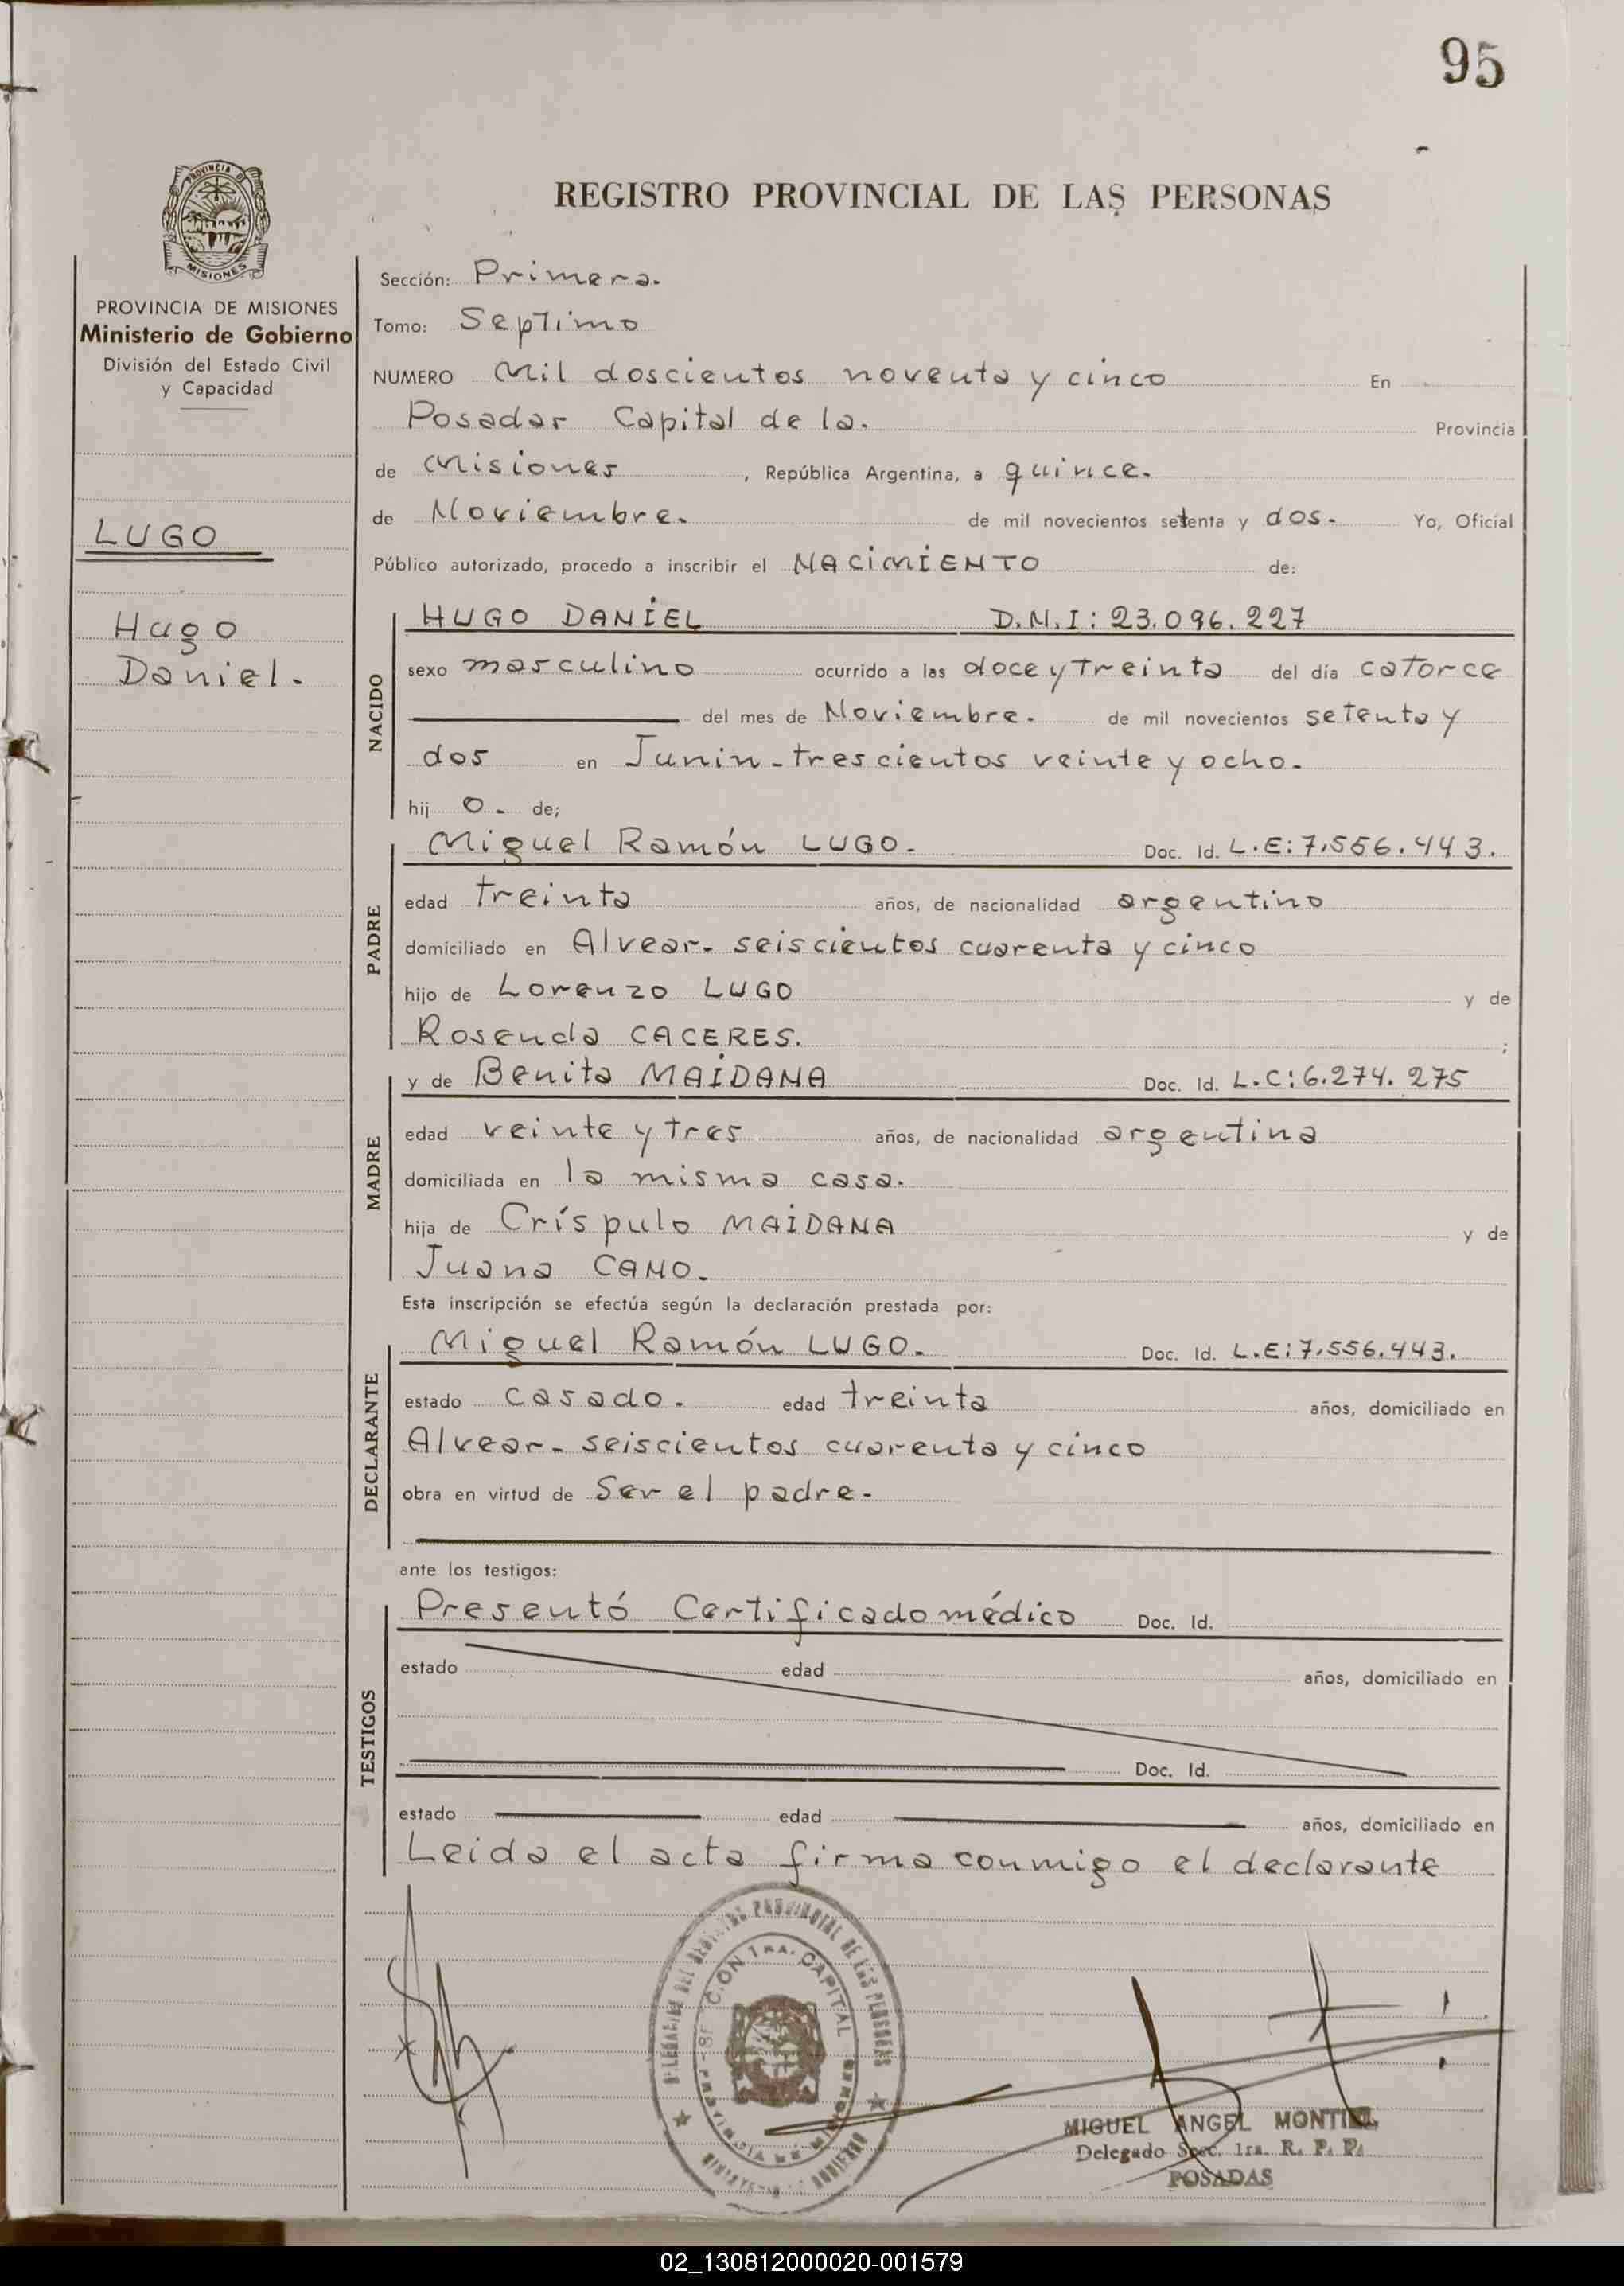 95
REGISTRO PROVINCIAL DE LAS PERSONAS
PROVINCIA DE MISIONES
Ministerio de Gobierno
División del Estado Civil
y Capacidad
LUGO
Hugo
Daniel.
Sección: Primera.
Tomo: Septimo
NUMERO Mil doscientos noventa y cinco En
Posadas Capital de la. Provincia
de Misiones, República Argentina, a quince.
de Noviembre. de mil novecientos setenta y dos. Yo, Oficial
Público autorizado, procedo a inscribir el NACIMIENTO de:
NACIDO
HUGO DANIEL D.N.I: 23.096.227
sexo masculino ocurrido a las doce y treinta del día catorce
del mes de Noviembre. de mil novecientos setenta y
dos en Junin - trescientos veinte y ocho.
hij o. de;
PADRE
Miguel Ramón LUGO. Doc. Id. L.E: 7.556.443.
edad treinta años, de nacionalidad argentino
domiciliado en Alvear - seiscientos cuarenta y cinco
hijo de Lorenzo LUGO y de
Rosenda CACERES. ;
MADRE
y de Benita MAIDANA Doc. Id. L.C: 6.274.275
edad veinte y tres años, de nacionalidad argentina
domiciliada en la misma casa.
hija de Críspulo MAIDANA y de
Juana CANO.
Esta inscripción se efectúa según la declaración prestada por:
DECLARANTE
Miguel Ramón LUGO. Doc. Id. L.E: 7.556.443.
estado casado. edad treinta años, domiciliado en
Alvear - seiscientos cuarenta y cinco
obra en virtud de Ser el padre.
ante los testigos:
TESTIGOS
Presentó Certificado médico Doc. Id.
estado edad años, domiciliado en
Doc. Id.
estado edad años, domiciliado en
Leida el acta firma conmigo el declarante
DELEGACION DEL REGISTRO PROVINCIAL DE LAS PERSONAS
SECCION 1RA. CAPITAL
PROVINCIA DE MISIONES
MINISTERIO GOBIERNO
MIGUEL ANGEL MONTIEL
Delegado Secc. 1ra. R. P. P.
POSADAS
02_130812000020-001579